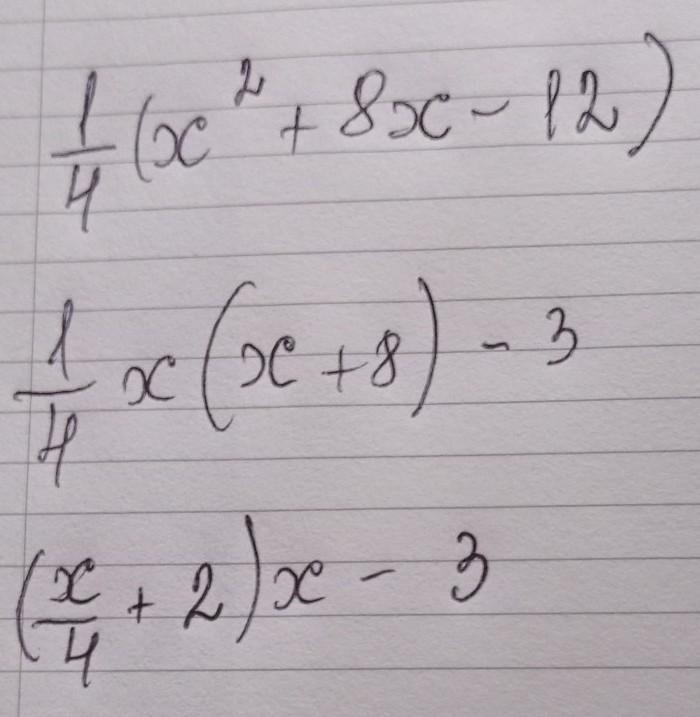 1/4 (x² + 8x - 12)
1/4 x (x + 8) - 3
(x/4 + 2) x - 3